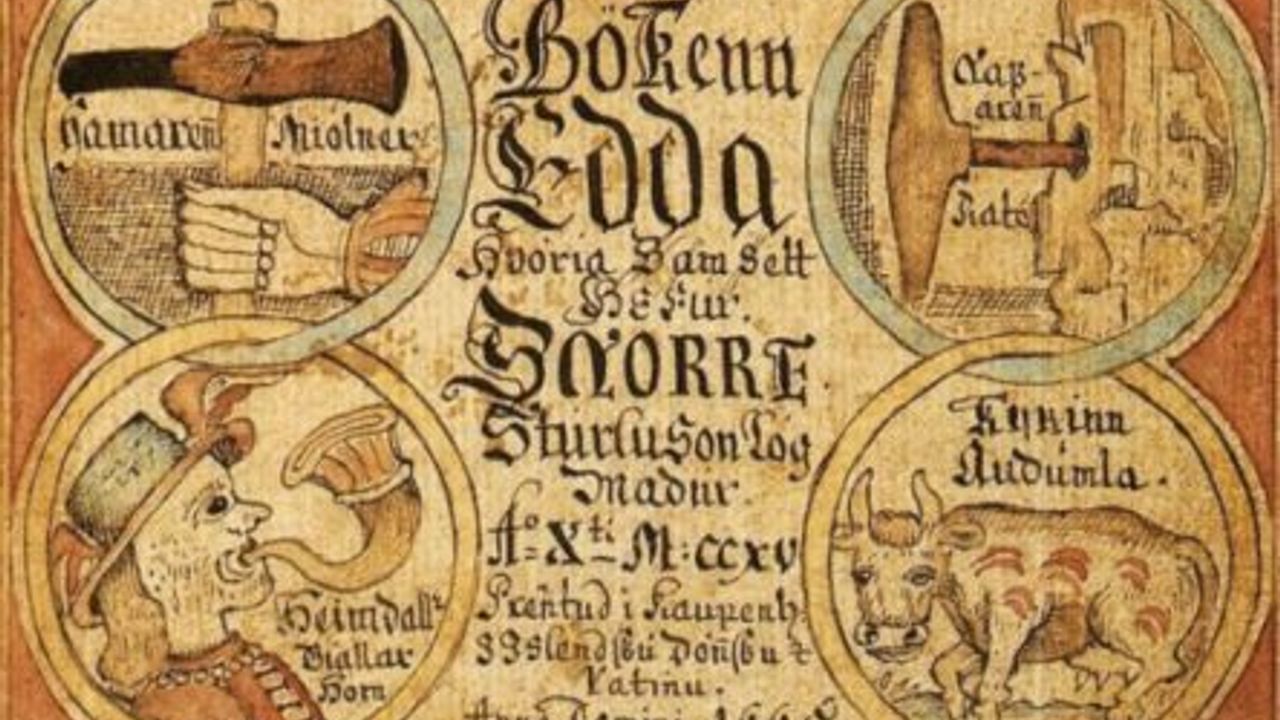 Hamareñ Miölner
Bökenn
Edda
Hvöria Sam Sett
HEFur.
SNORRE
Sturlu Son Lög
Madur.
Aº= Xti– M:CCXV
Preñtud i Kaupenh
Islendsku Dönsku
Latinu.
Anno Domini
Nafareñ
Rate
Heimdall
Giallar
Horn
Kyrinn
Audumla.